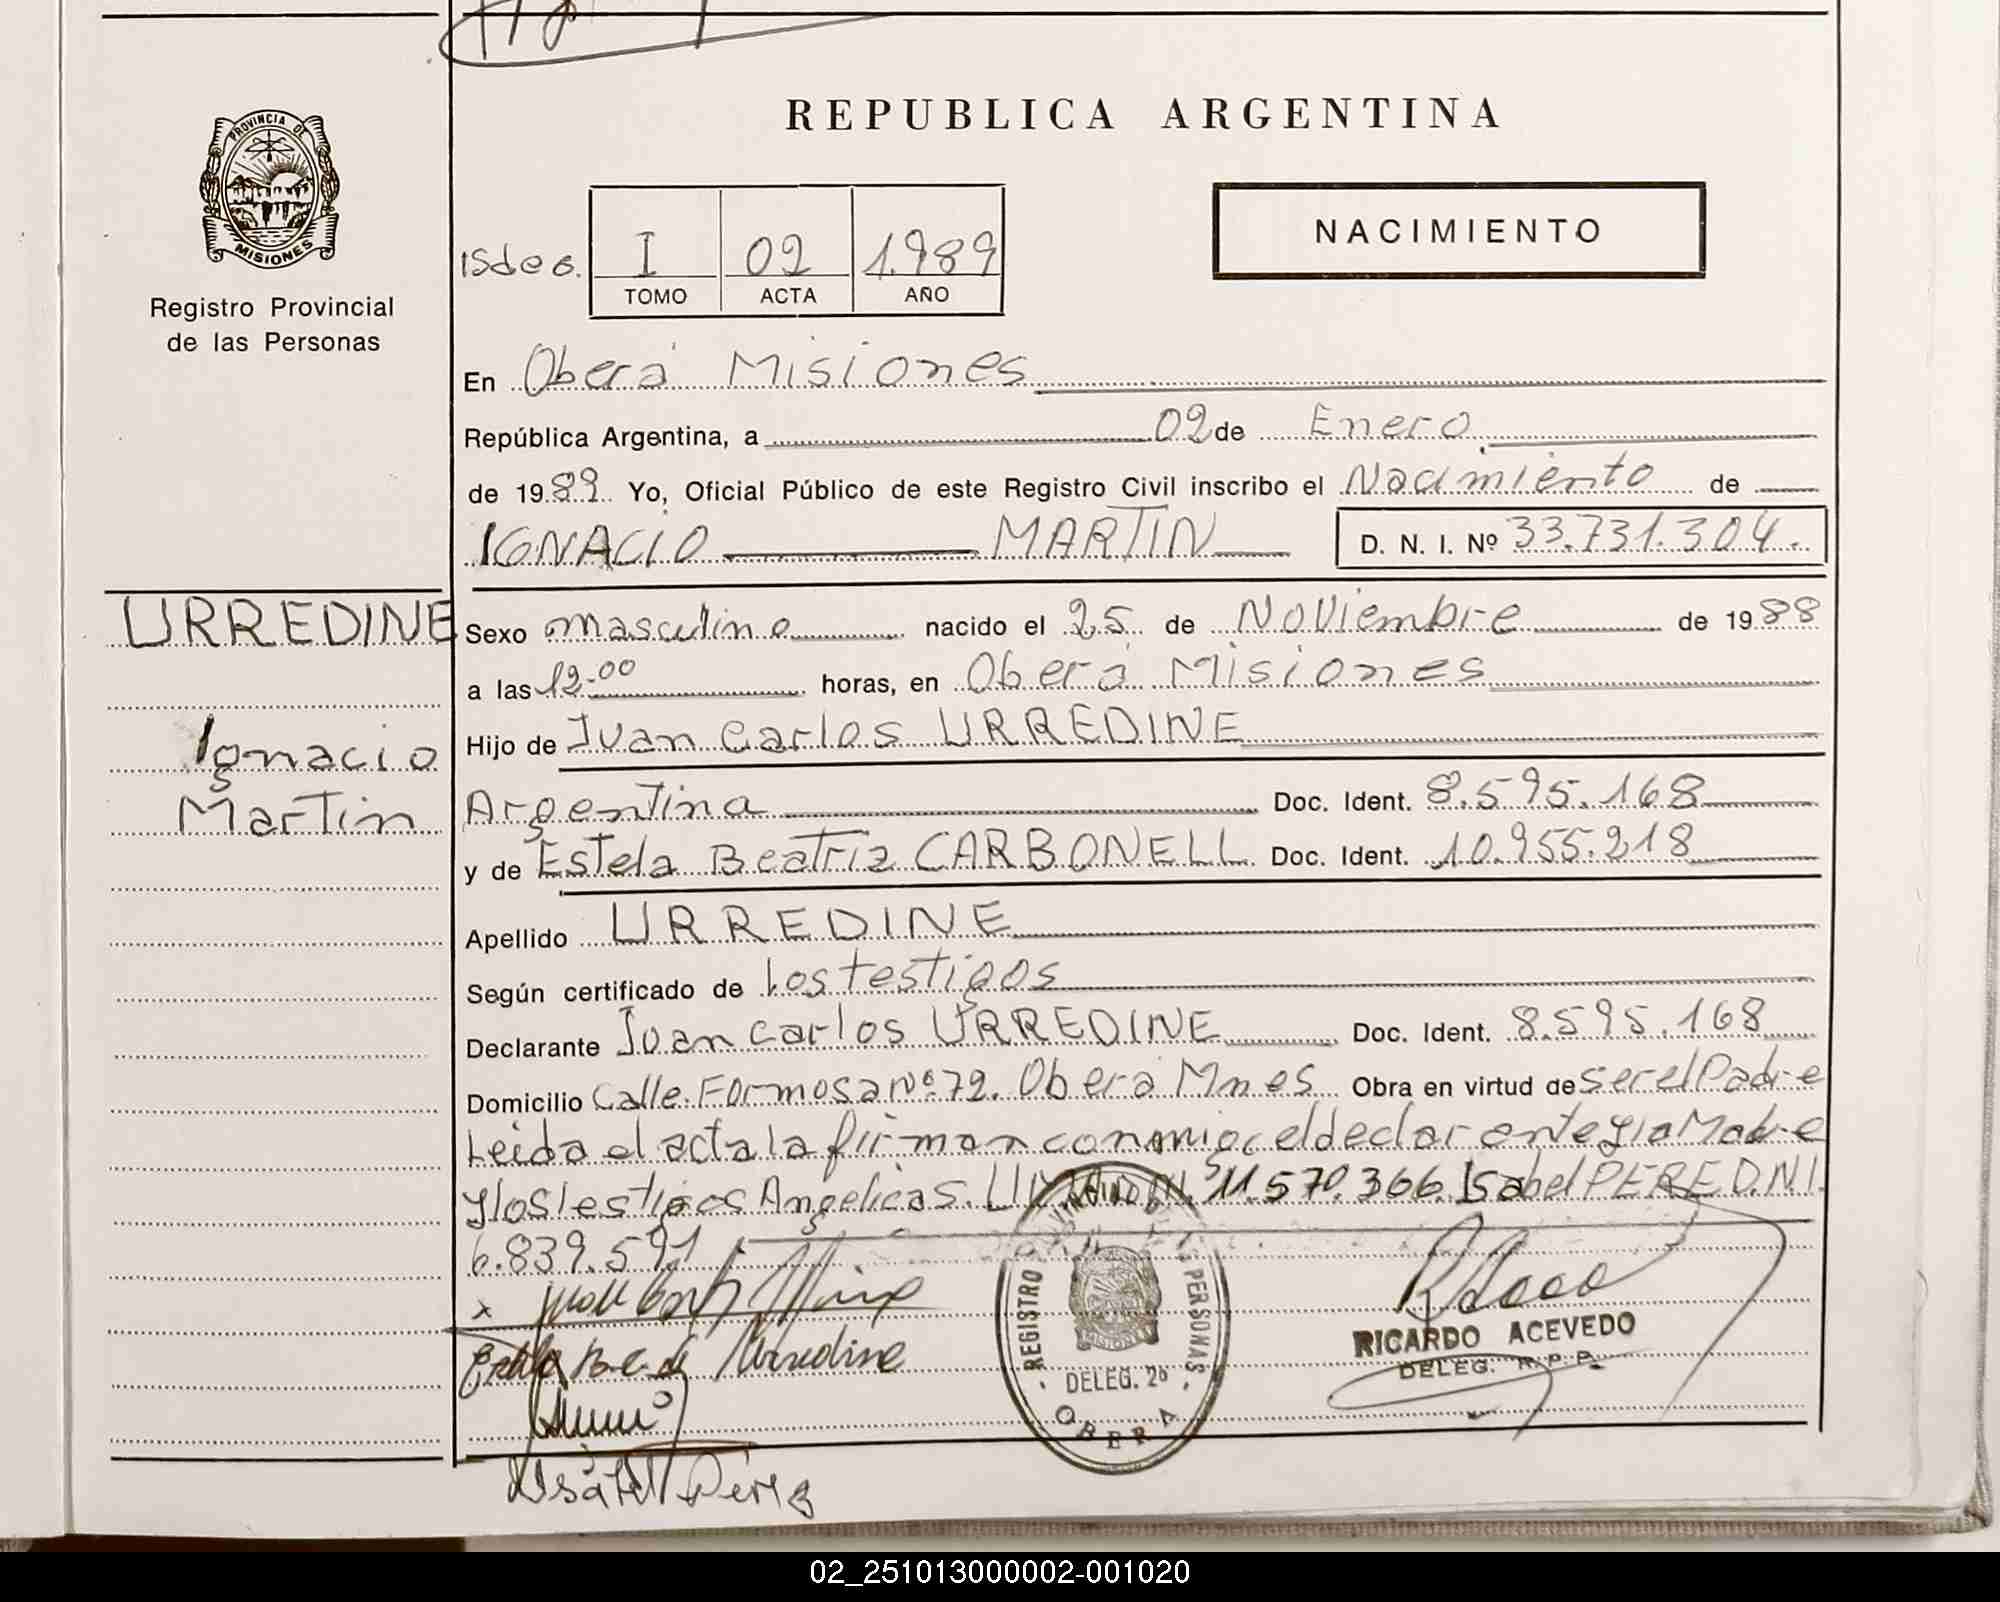 REPUBLICA ARGENTINA
PROVINCIA DE
MISIONES
Registro Provincial
de las Personas
NACIMIENTO
I 02 1.989
TOMO ACTA AÑO
En Oberá Misiones
República Argentina, a 02 de Enero
de 1989 Yo, Oficial Público de este Registro Civil inscribo el Nacimiento de
IGNACIO MARTIN D. N. I. Nº 33.731.304.
URREDINE
Ignacio
Martin
Sexo masculino nacido el 25 de Noviembre de 1988
a las 12-00 horas, en Oberá Misiones
Hijo de Juan Carlos URREDINE
Argentina Doc. Ident. 8.595.168
y de Estela Beatriz CARBONELL Doc. Ident. 10.955.218
Apellido URREDINE
Según certificado de Los testigos
Declarante Juan Carlos URREDINE Doc. Ident. 8.595.168
Domicilio Calle Formosa Nº 72. Oberá Mnes Obra en virtud de ser el Padre
Leida el acta la firman conmigo el declarante y la Madre
y los testigos Angelica S. 11.570.366. Isabel PERE D.N.I.
6.839.591
x
Urredine
REGISTRO PROVINCIAL DE PERSONAS
MISIONES
DELEG. 26
OBERA
RICARDO ACEVEDO
DELEG. R.P.P.
02_251013000002-001020